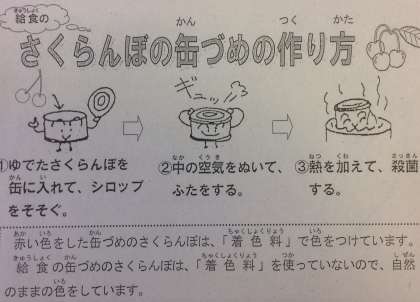 給食の
さくらんぼの缶づめの作り方
ギュッ!!
①ゆでたさくらんぼを
缶に入れて、シロップ
をそそぐ。
②中の空気をぬいて、
ふたをする。
③熱を加えて、殺菌
する。
赤い色をした缶づめのさくらんぼは、「着色料」で色をつけています。
給食の缶づめのさくらんぼは、「着色料」を使っていないので、自然
のままの色をしています。